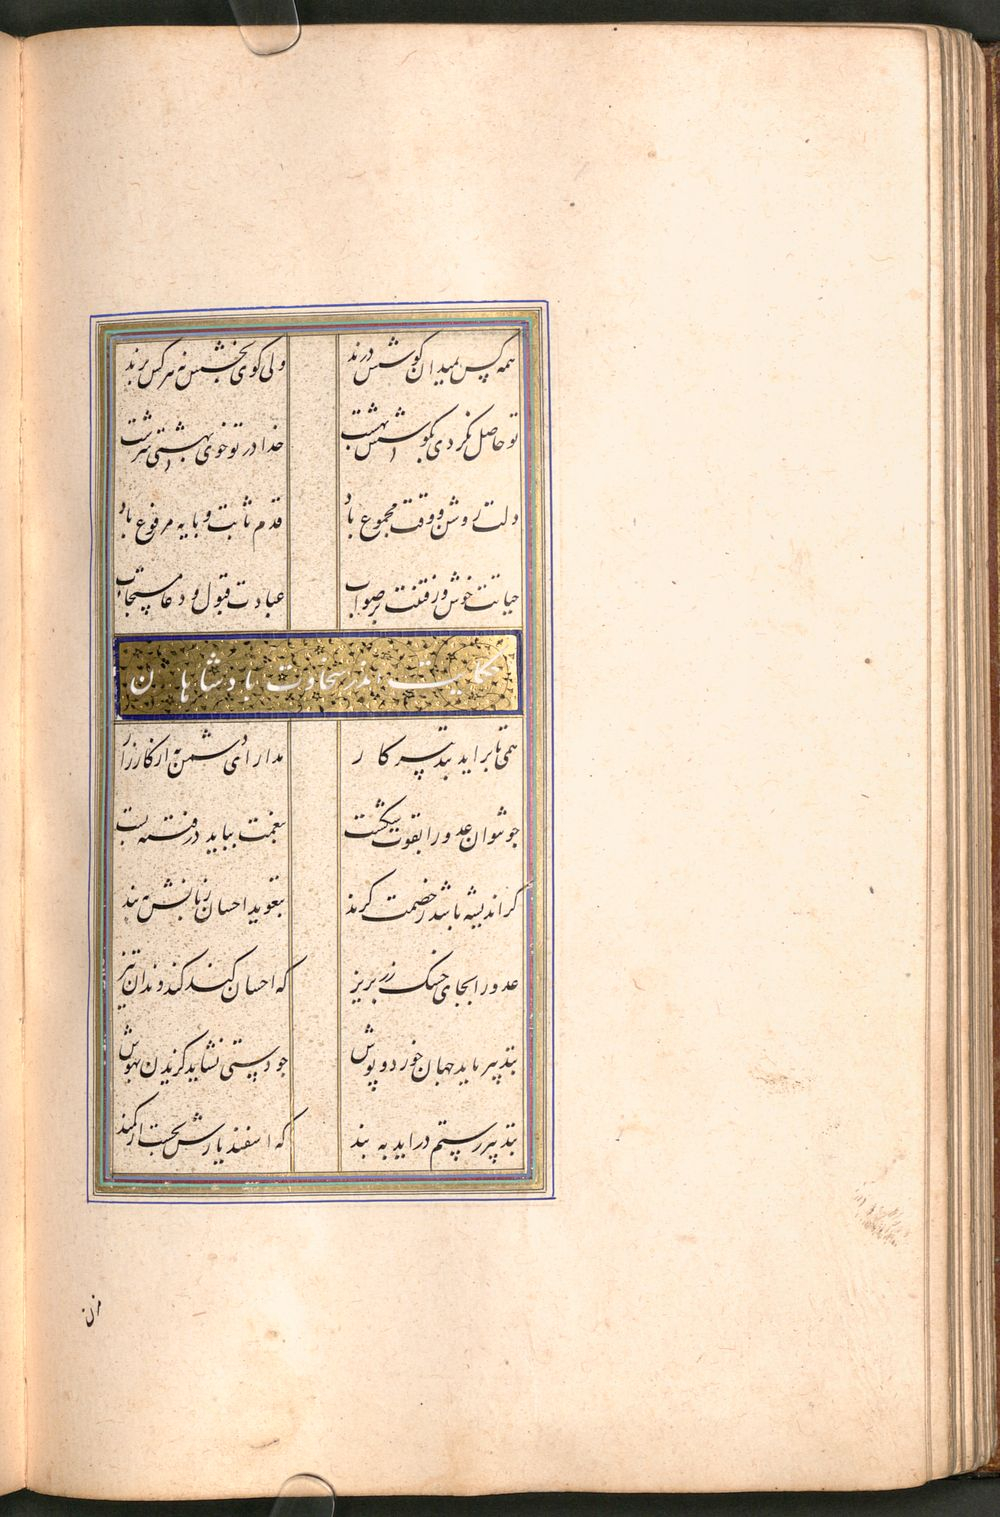 همه کس بمیدان کوشش درند ولی کوی بخشش نه هر کس برند
تو حاصل نکردی بکوشش بهشت خدا در تو خوی بهشتی سرشت
دلت روشن و وقت مجموع باد قدم ثابت و پایه مرفوع باد
حیاتت خوش و رفتنت بر صواب عبادت قبول و دعا مستجاب
حکایت اندر سخاوت پادشاهان
همی تا براید بتدبیر کار مدارای دشمن به از کارزار
چو نتوان عدو را بقوت شکست بنعمت بباید در فتنه بست
گر اندیشه باشد ز خصمت گزند بتعوید احسان زبانش به بند
عدو را بجای خسک زر بریز که احسان کند کند دندان تیز
بتدبیر باید جهان خورد و پوش چو دستی نشاید گزیدن ببوش
بتدبیر رستم دراید به بند که اسفندیارش نجست از کمند